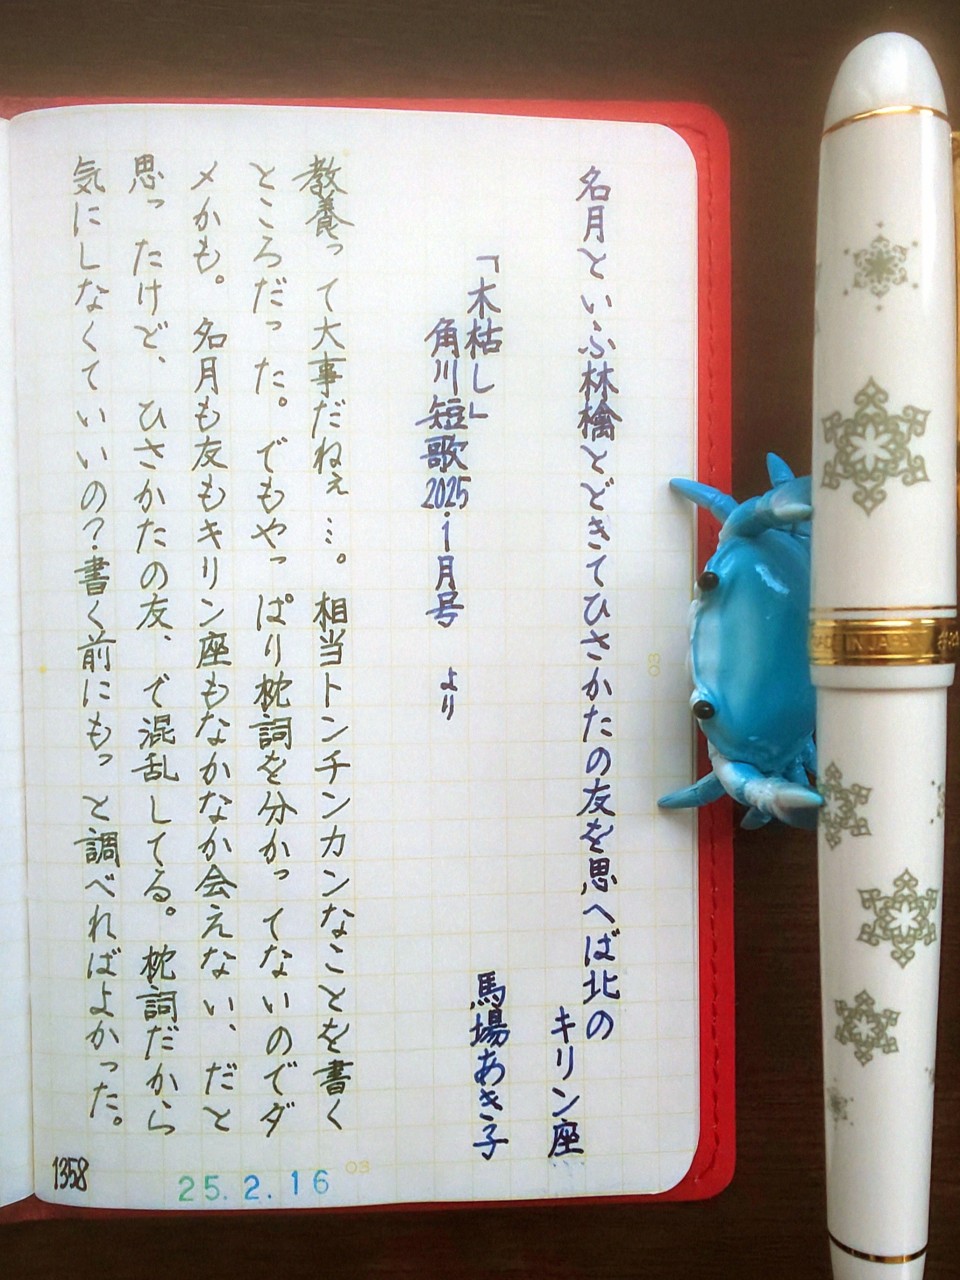 名月といふ林檎とどきてひさかたの友を思へば北の
キリン座
「木枯し」
馬場あき子
角川短歌2025.1月号 より
教養って大事だねぇ…。相当トンチンカンなことを書く
ところだった。でもやっぱり枕詞を分かってないのでダ
メかも。名月も友もキリン座もなかなか会えない、だと
思ったけど、ひさかたの友、で混乱してる。枕詞だから
気にしなくていいの?書く前にもっと調べればよかった。
1358
25.2.16
03
03
MADE IN JAPAN